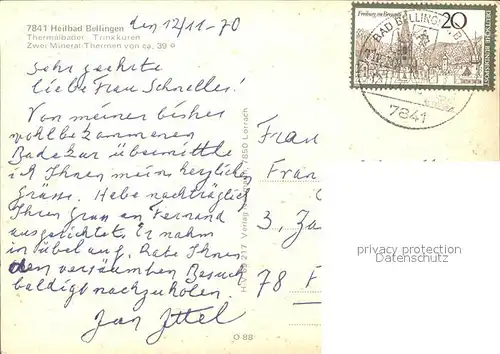 den 12/11-70
7841 Heilbad Bellingen
Thermalbäder - Trinkkuren
Zwei Mineral-Thermen von ca. 39°
Sehr geehrte
liebe Frau Schnelles!
Von meiner bisher
wohlbekommenen
Badekur übermittle
ich Ihnen meine herzlichen
Grüsse. Habe nachträglich
Ihren Gruss an Fernand
ausgerichtet. Er nahm
in übel auf, hate Ihnen
den versäumten Besuch
baldigst nachzuholen.
Jan Ittel
O 88
217 Verlag 7850 Lörrach
Freiburg im Breisgau
20
DEUTSCHE BUNDESPOST
BAD BELLINGEN
7841
Frau
Fran
3, Ja
78 F
privacy protection
Datenschutz